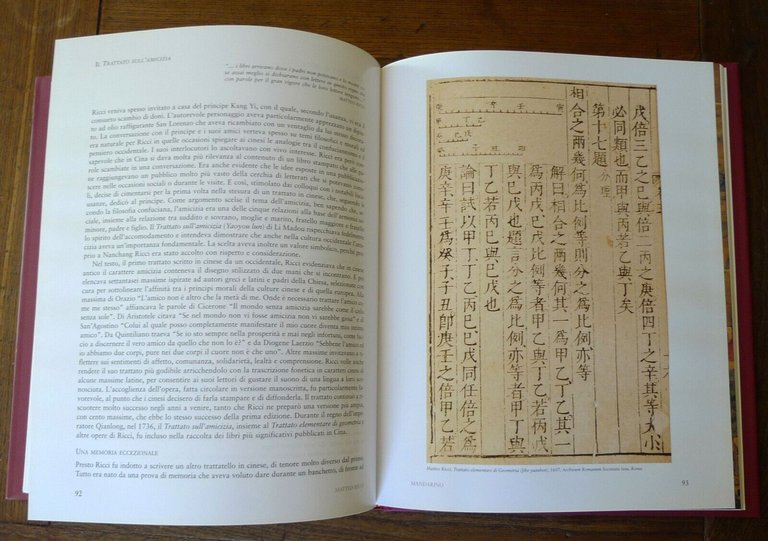 Il Trattato sull'amicizia
“... i libri arrivano dove i padri non
Ricci veniva spesso invitato a casa del principe Kang Yi, con il quale, secondo l'usanza, vi era
consueto scambio di doni. L'autorevole personaggio aveva particolarmente apprezzato un
to ad olio raffigurante San Lorenzo che aveva ricambiato con un ventaglio da lui stesso
to. La conversazione con il principe e i suoi amici verteva spesso su temi filosofici e
era naturale per Ricci in quelle occasioni spiegare ai cinesi le analogie tra il confucianesimo e il
pensiero occidentale. I suoi interlocutori lo ascoltavano con vivo interesse. Ricci era però con-
sapevole che in Cina si dava molta più rilevanza al contenuto di un libro stampato che alle pa-
role scambiate in una conversazione. Era anche evidente che le idee esposte in una pubblicazione
raggiungevano un pubblico molto più vasto della cerchia di letterati che si potevano
scere nelle occasioni sociali o durante le visite. E così, stimolato dai colloqui con i
li, decise di cimentarsi per la prima volta nella stesura di un trattato in cinese, che,
usanze, dedicò al principe. Come argomento scelse il tema dell'amicizia, ben sapendo che,
condo la filosofia confuciana, l'amicizia era una delle cinque relazioni alla base dell'armonia
miale, insieme alla relazione tra suddito e sovrano, moglie e marito, fratello maggiore e fratello
minore, padre e figlio. Il Trattato sull'amicizia (Yaoyou lun) di Li Madou rispecchiava l'adesione
lo spirito dell'accomodamento e intendeva dimostrare che anche nella cultura occidentale l'ami-
cizia aveva un'importanza fondamentale. La scelta aveva inoltre un valore simbolico, perché
a Nanchang Ricci era stato accolto con rispetto e considerazione.
Nel testo, il primo trattato scritto in cinese da un occidentale, Ricci evidenziava che in cinese
antico il carattere amicizia conteneva il disegno stilizzato di due mani che si incontrano. E poi
elencava settantasei massime ispirate ad autori greci e latini e padri della Chiesa, selezionate
con cura per sottolineare l'affinità tra i principi morali della cultura cinese e di quella europea. Alla
massima di Orazio “L'amico non è altro che la metà di me. Onde è necessario trattare l'amico co-
me me stesso” affiancava le parole di Cicerone “Il mondo senza amicizia sarebbe come il cielo
senza sole”. Di Aristotele citava “Se nel mondo non vi fosse amicizia non vi sarebbe gioia” e di
Sant'Agostino “Colui al quale posso completamente manifestare il mio cuore diventa mio intimo
amico”. Da Quintiliano traeva “Se io sto sempre nella prosperità e mai negli infortuni, come fac-
cio a discernere il vero amico da quello che non lo è?” e da Diogene Laerzio “Sebbene l'amico ed
io abbiamo due corpi, pure nei due corpi il cuore non è che uno”. Altre massime invitavano a ri-
flettere sui sentimenti di affetto, comunanza, solidarietà, lealtà e comprensione. Ricci volle anche
rendere il suo trattato più godibile arricchendolo con la trascrizione fonetica in caratteri cinesi di
alcune massime latine, per consentire ai suoi lettori di gustare il suono di una lingua a loro sco-
nosciuta. L'accoglienza dell'opera, fatta circolare in versione manoscritta, fu particolarmente fa-
vorevole, al punto che i cinesi decisero di farla stampare e di diffonderla. Il trattato continuò a ri-
scuotere molto successo negli anni a venire, tanto che Ricci ne preparò una versione più ampia,
con cento massime, che ebbe lo stesso successo della prima edizione. Durante il regno dell'impe-
ratore Qianlong, nel 1736, il Trattato sull'amicizia, insieme al Trattato elementare di geometria e
altre opere di Ricci, fu incluso nella raccolta dei libri più significativi pubblicati in Cina.
Una memoria eccezionale
Presto Ricci fu indotto a scrivere un altro trattatello in cinese, di tenore molto diverso dal primo.
Tutto era nato da una prova di memoria che aveva voluto dare durante un banchetto, di fronte ad
92
戊倍三乙之巳與倍二丙之庚倍四丁之辛其等大小
必同類也而甲與丙若乙與丁矣
第十七題 分理
相合之兩幾何爲比例等則分之爲比例亦等
解曰相合之兩幾何其一爲甲乙丁乙其一
爲丙戊巳戊比例等者甲乙與丁乙若丙戊
與巳戊也題言分之爲比例亦等者甲丁與
丁乙若丙巳與巳戊也
論曰試以甲丁丁乙丙巳巳戊同任倍之爲
庚辛辛壬爲癸子子丑即庚壬之倍甲乙若
Matteo Ricci, Trattato elementare di Geometria (Jihe yuanben), 1607, Archivum Romanum Societatis Iesu, Roma
MANDARINO
93